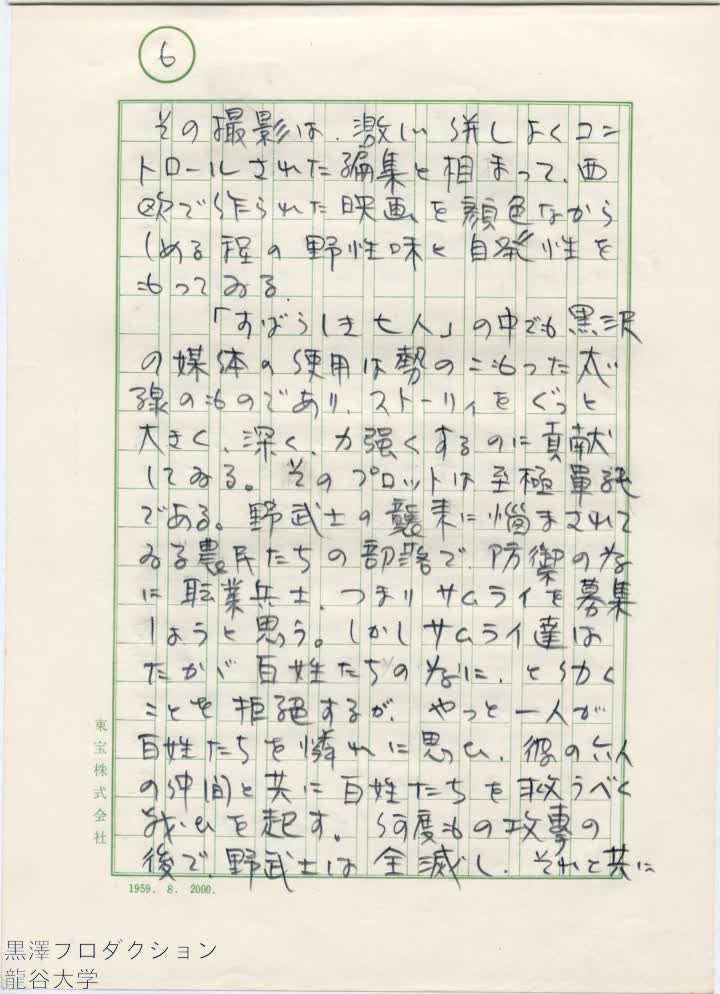 6
その撮影は、激しい併しよくコン
トロールされた編集と相まって、西
欧で作られた映画を顔色なから
しめる程の野性味と自発性を
もってゐる.
「すばらしき七人」の中でも黒沢
の媒体の使用は勢のこもった太い
線のものであり、ストーリィをぐっと
大きく、深く、力強くするのに貢献
してゐる。そのプロットは至極単純
である。野武士の襲来に悩まされて
ゐる農民たちの部落で、防禦の為
に職業兵士、つまりサムライを募集
しようと思う。しかしサムライ達は
たかが百姓たちの為に、
ことを拒絶するが、やっと一人が
百姓たちを憐れに思ひ、彼の六人
の仲間と共に百姓たちを救うべく
戦ひを起す。何度もの攻撃の
後で、野武士は全滅し、それと共に
東宝株式会社
1959. 8. 2000.
黒澤プロダクション
龍谷大学